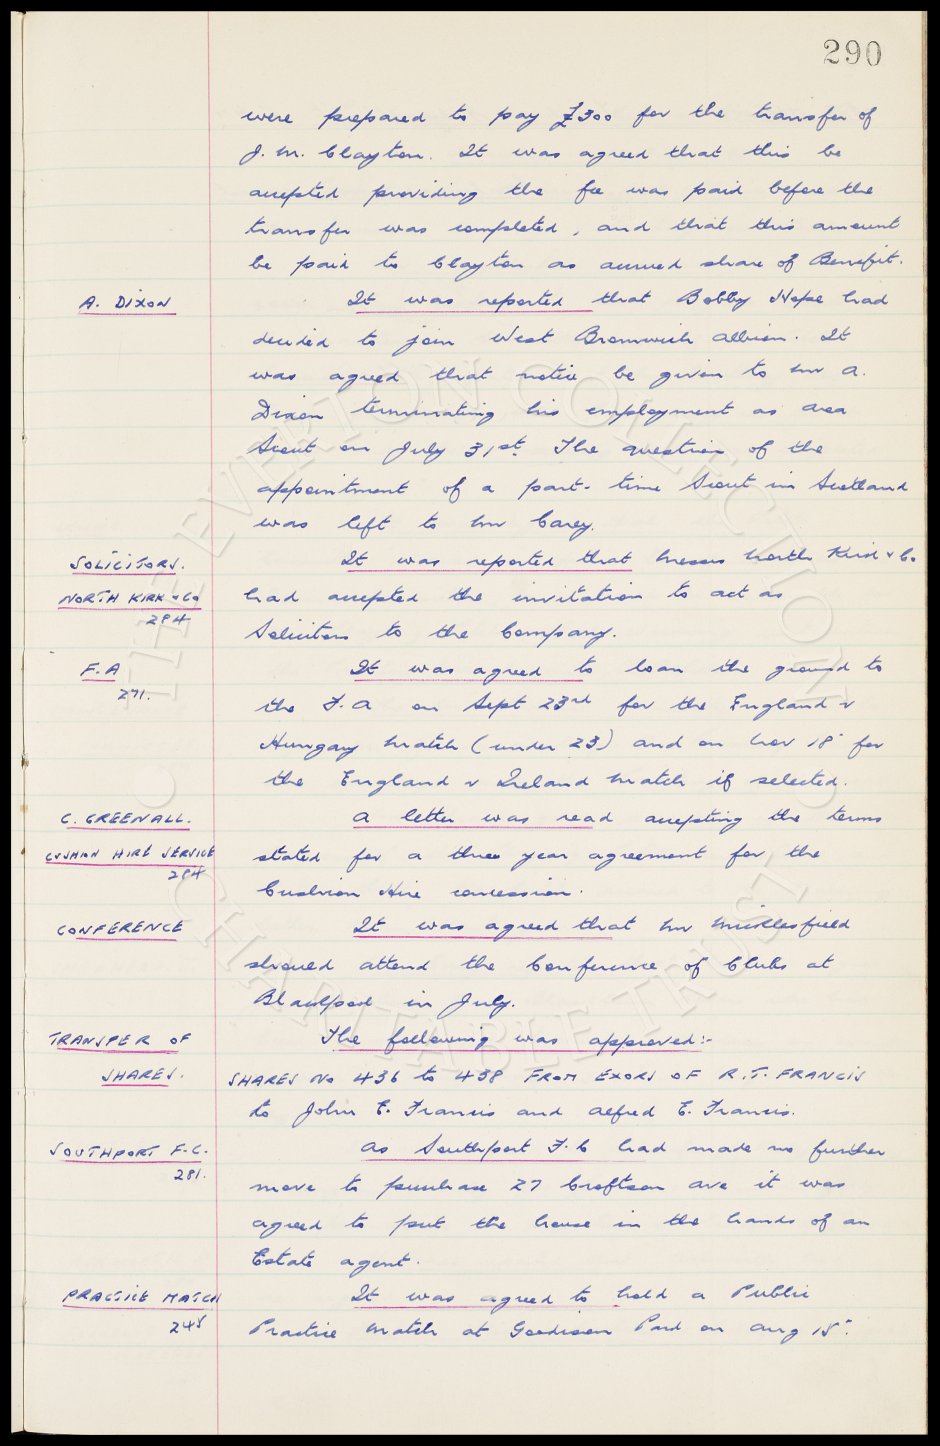 290
were prepared to pay £300 for the transfer of
J. M. Clayton. It was agreed that this be
accepted providing the fee was paid before the
transfer was completed, and that this amount
be paid to Clayton as accrued share of Benefit.
A. DIXON
It was reported that Bobby Hope had
decided to join West Bromwich Albion. It
was agreed that notice be given to Mr A.
Dixon terminating his employment as area
Scout on July 31st. The question of the
appointment of a part-time Scout in Scotland
was left to Mr Carey.
SOLICITORS.
It was reported that Messrs North Kirk & Co
NORTH KIRK & Co
had accepted the invitation to act as
284
Solicitors to the Company.
F.A
It was agreed to loan the ground to
271.
the F.A on Sept 23rd for the England v
Hungary Match (under 23) and on Nov 18th for
the England v Ireland Match if selected.
C. GREENALL.
A letter was read accepting the terms
CUSHION HIRE SERVICE
stated for a three year agreement for the
284
Cushion Hire concession.
CONFERENCE
It was agreed that Mr Micklesfield
should attend the Conference of Clubs at
Blackpool in July.
TRANSFER OF
The following was approved:-
SHARES.
SHARES No 436 to 438 FROM EXORS OF R.T. FRANCIS
to John E. Francis and Alfred E. Francis.
SOUTHPORT F.C.
As Southport F.C had made no further
281.
move to purchase 27 Croftson Ave it was
agreed to put the house in the hands of an
Estate agent.
PRACTICE MATCH
It was agreed to hold a Public
245
Practice Match at Goodison Park on Aug 15th.
THE EVERTON COLLECTION
CHARITABLE TRUST